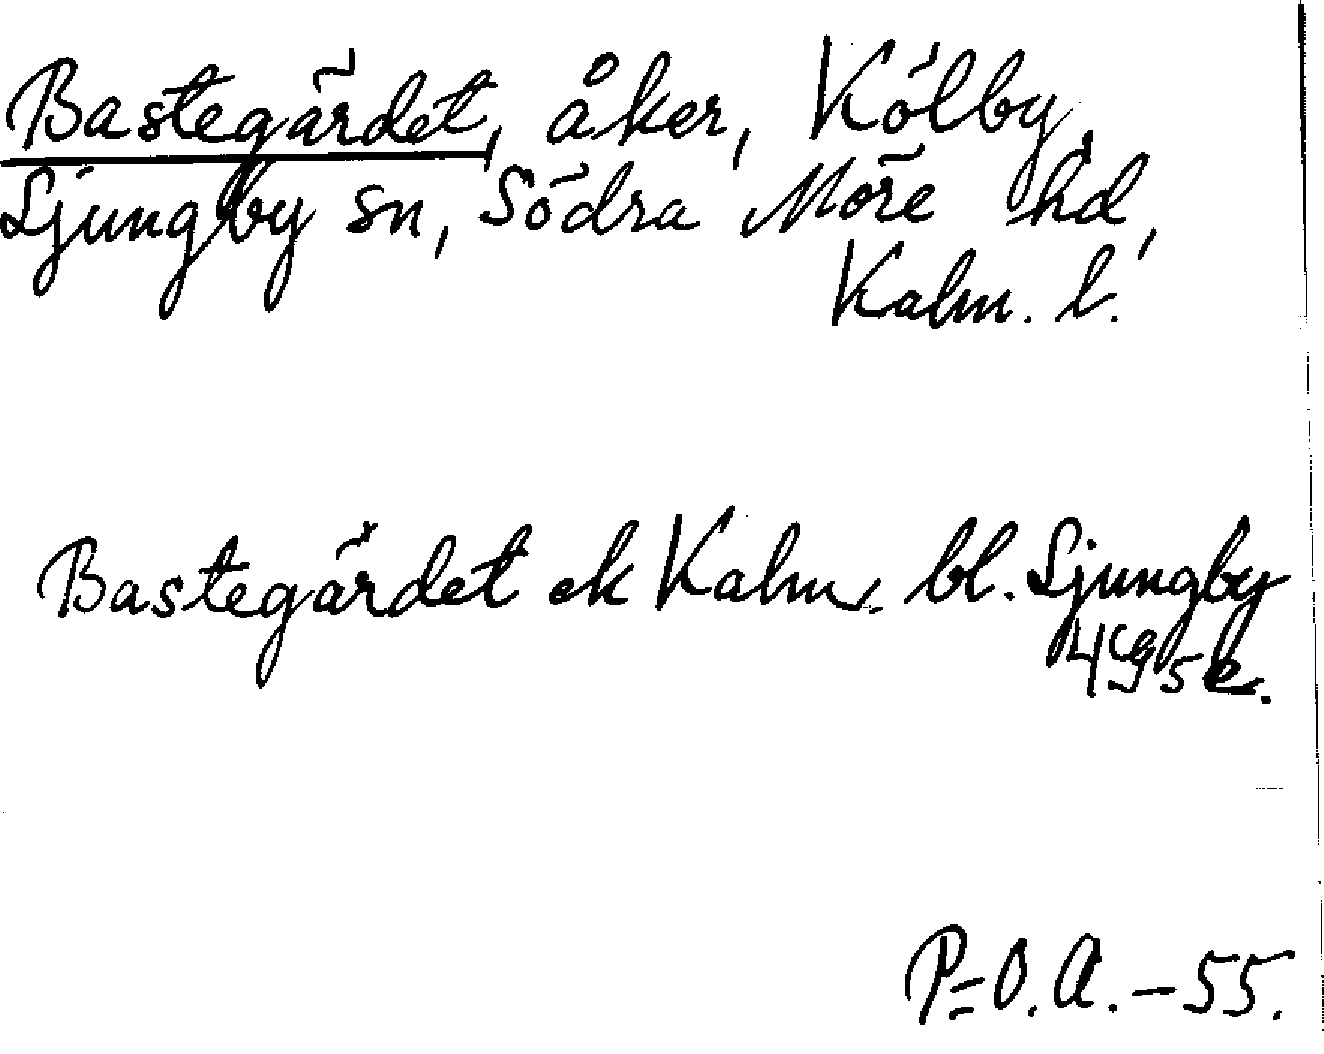 Bastegärdet, åker, Kölby,
Ljungby sn, Södra Möre hd,
Kalm. l.
Bastegärdet ek Kalm. bl. Ljungby
P=O.A.-55.